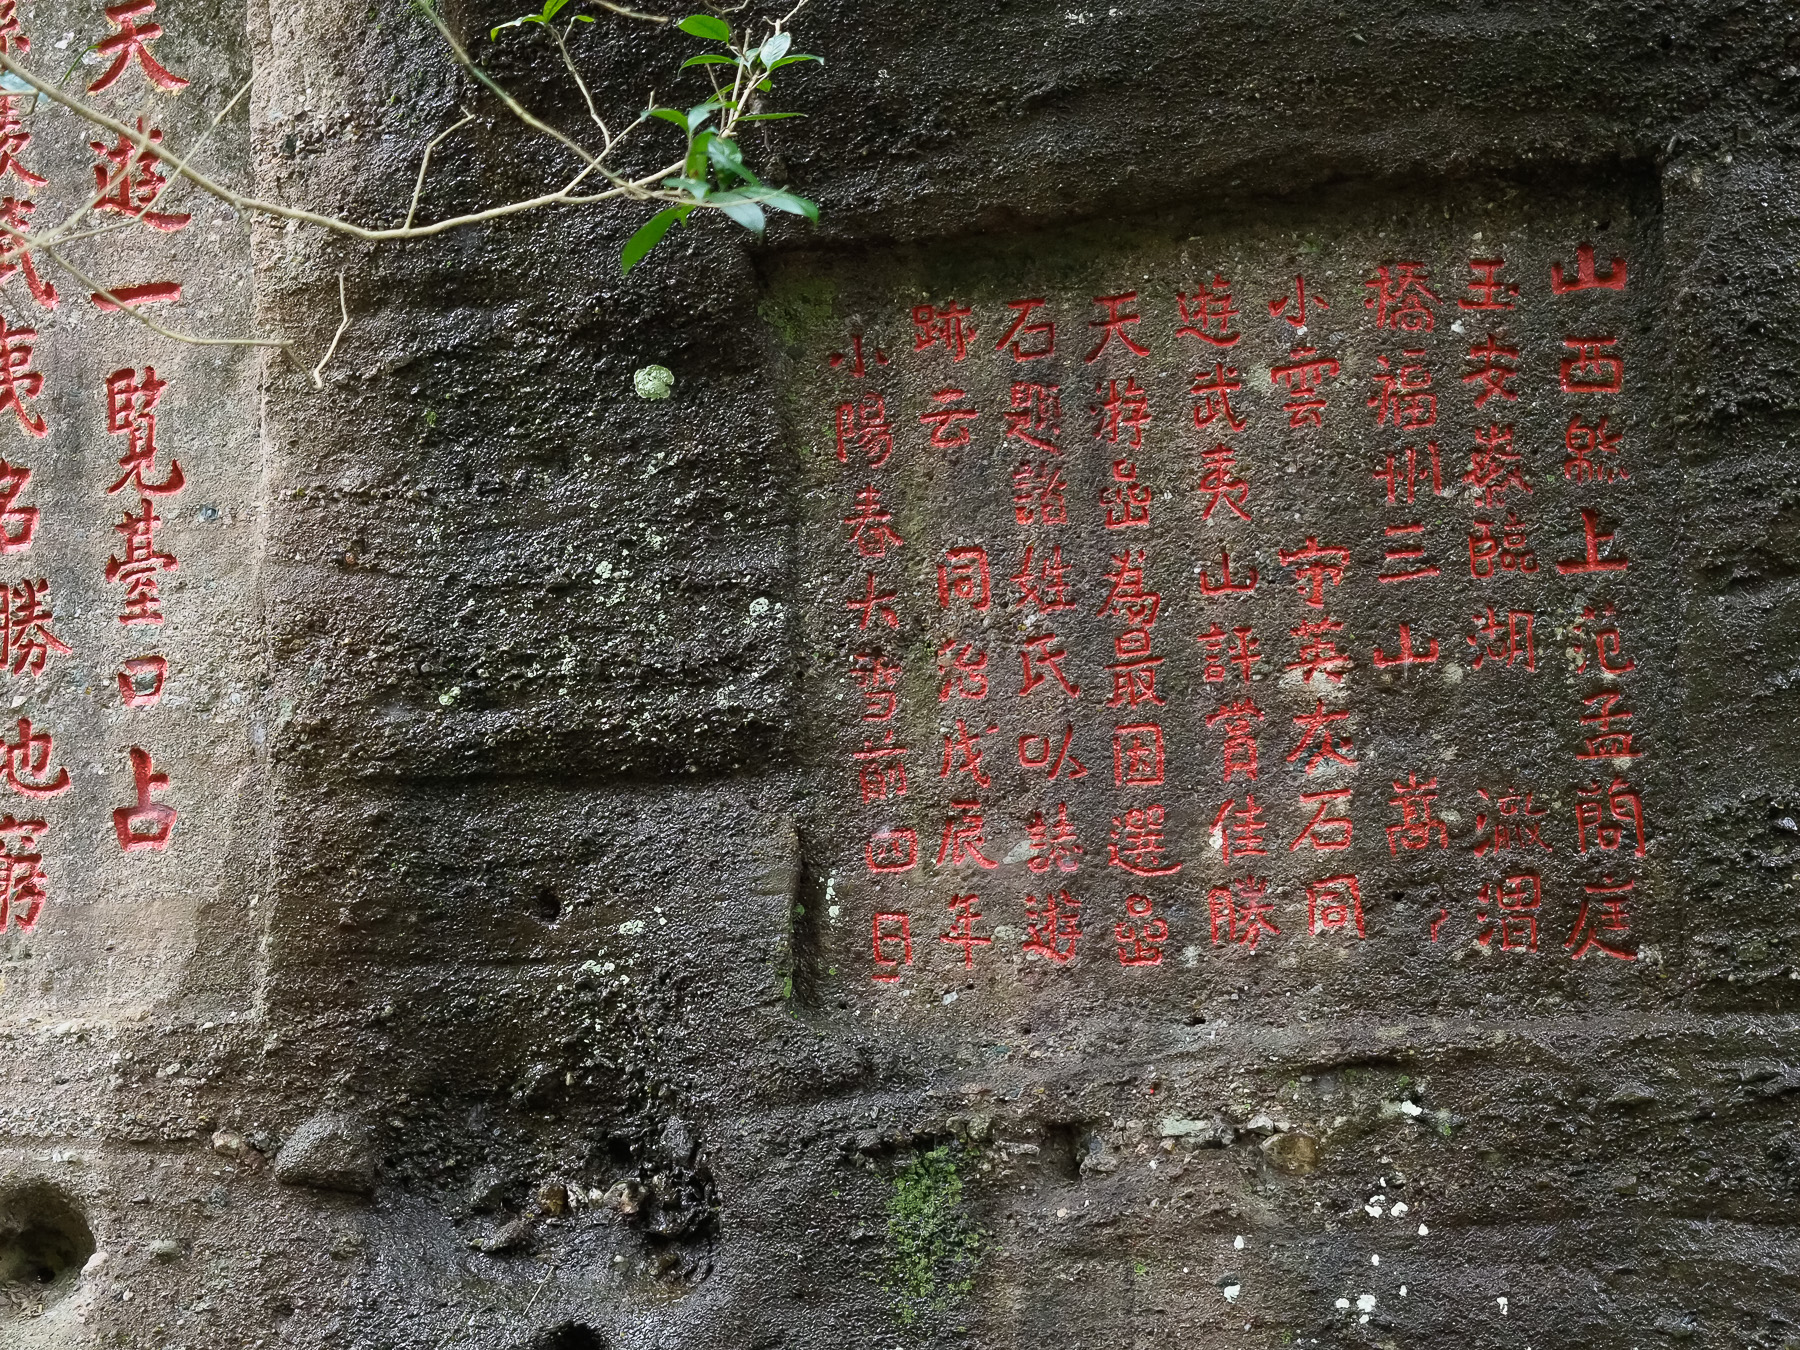 山西緜上范孟蕳庭
玉安嚴臨湖 澂渭
橋福州三山 嵩
小雲 守英友石同
遊武夷山評賞佳勝
天游嵒為最因選嵒
石題諸姓氏以誌遊
跡云 同治戊辰年
小陽春大雪前四日
天遊一覽臺口占
武夷名勝地窮